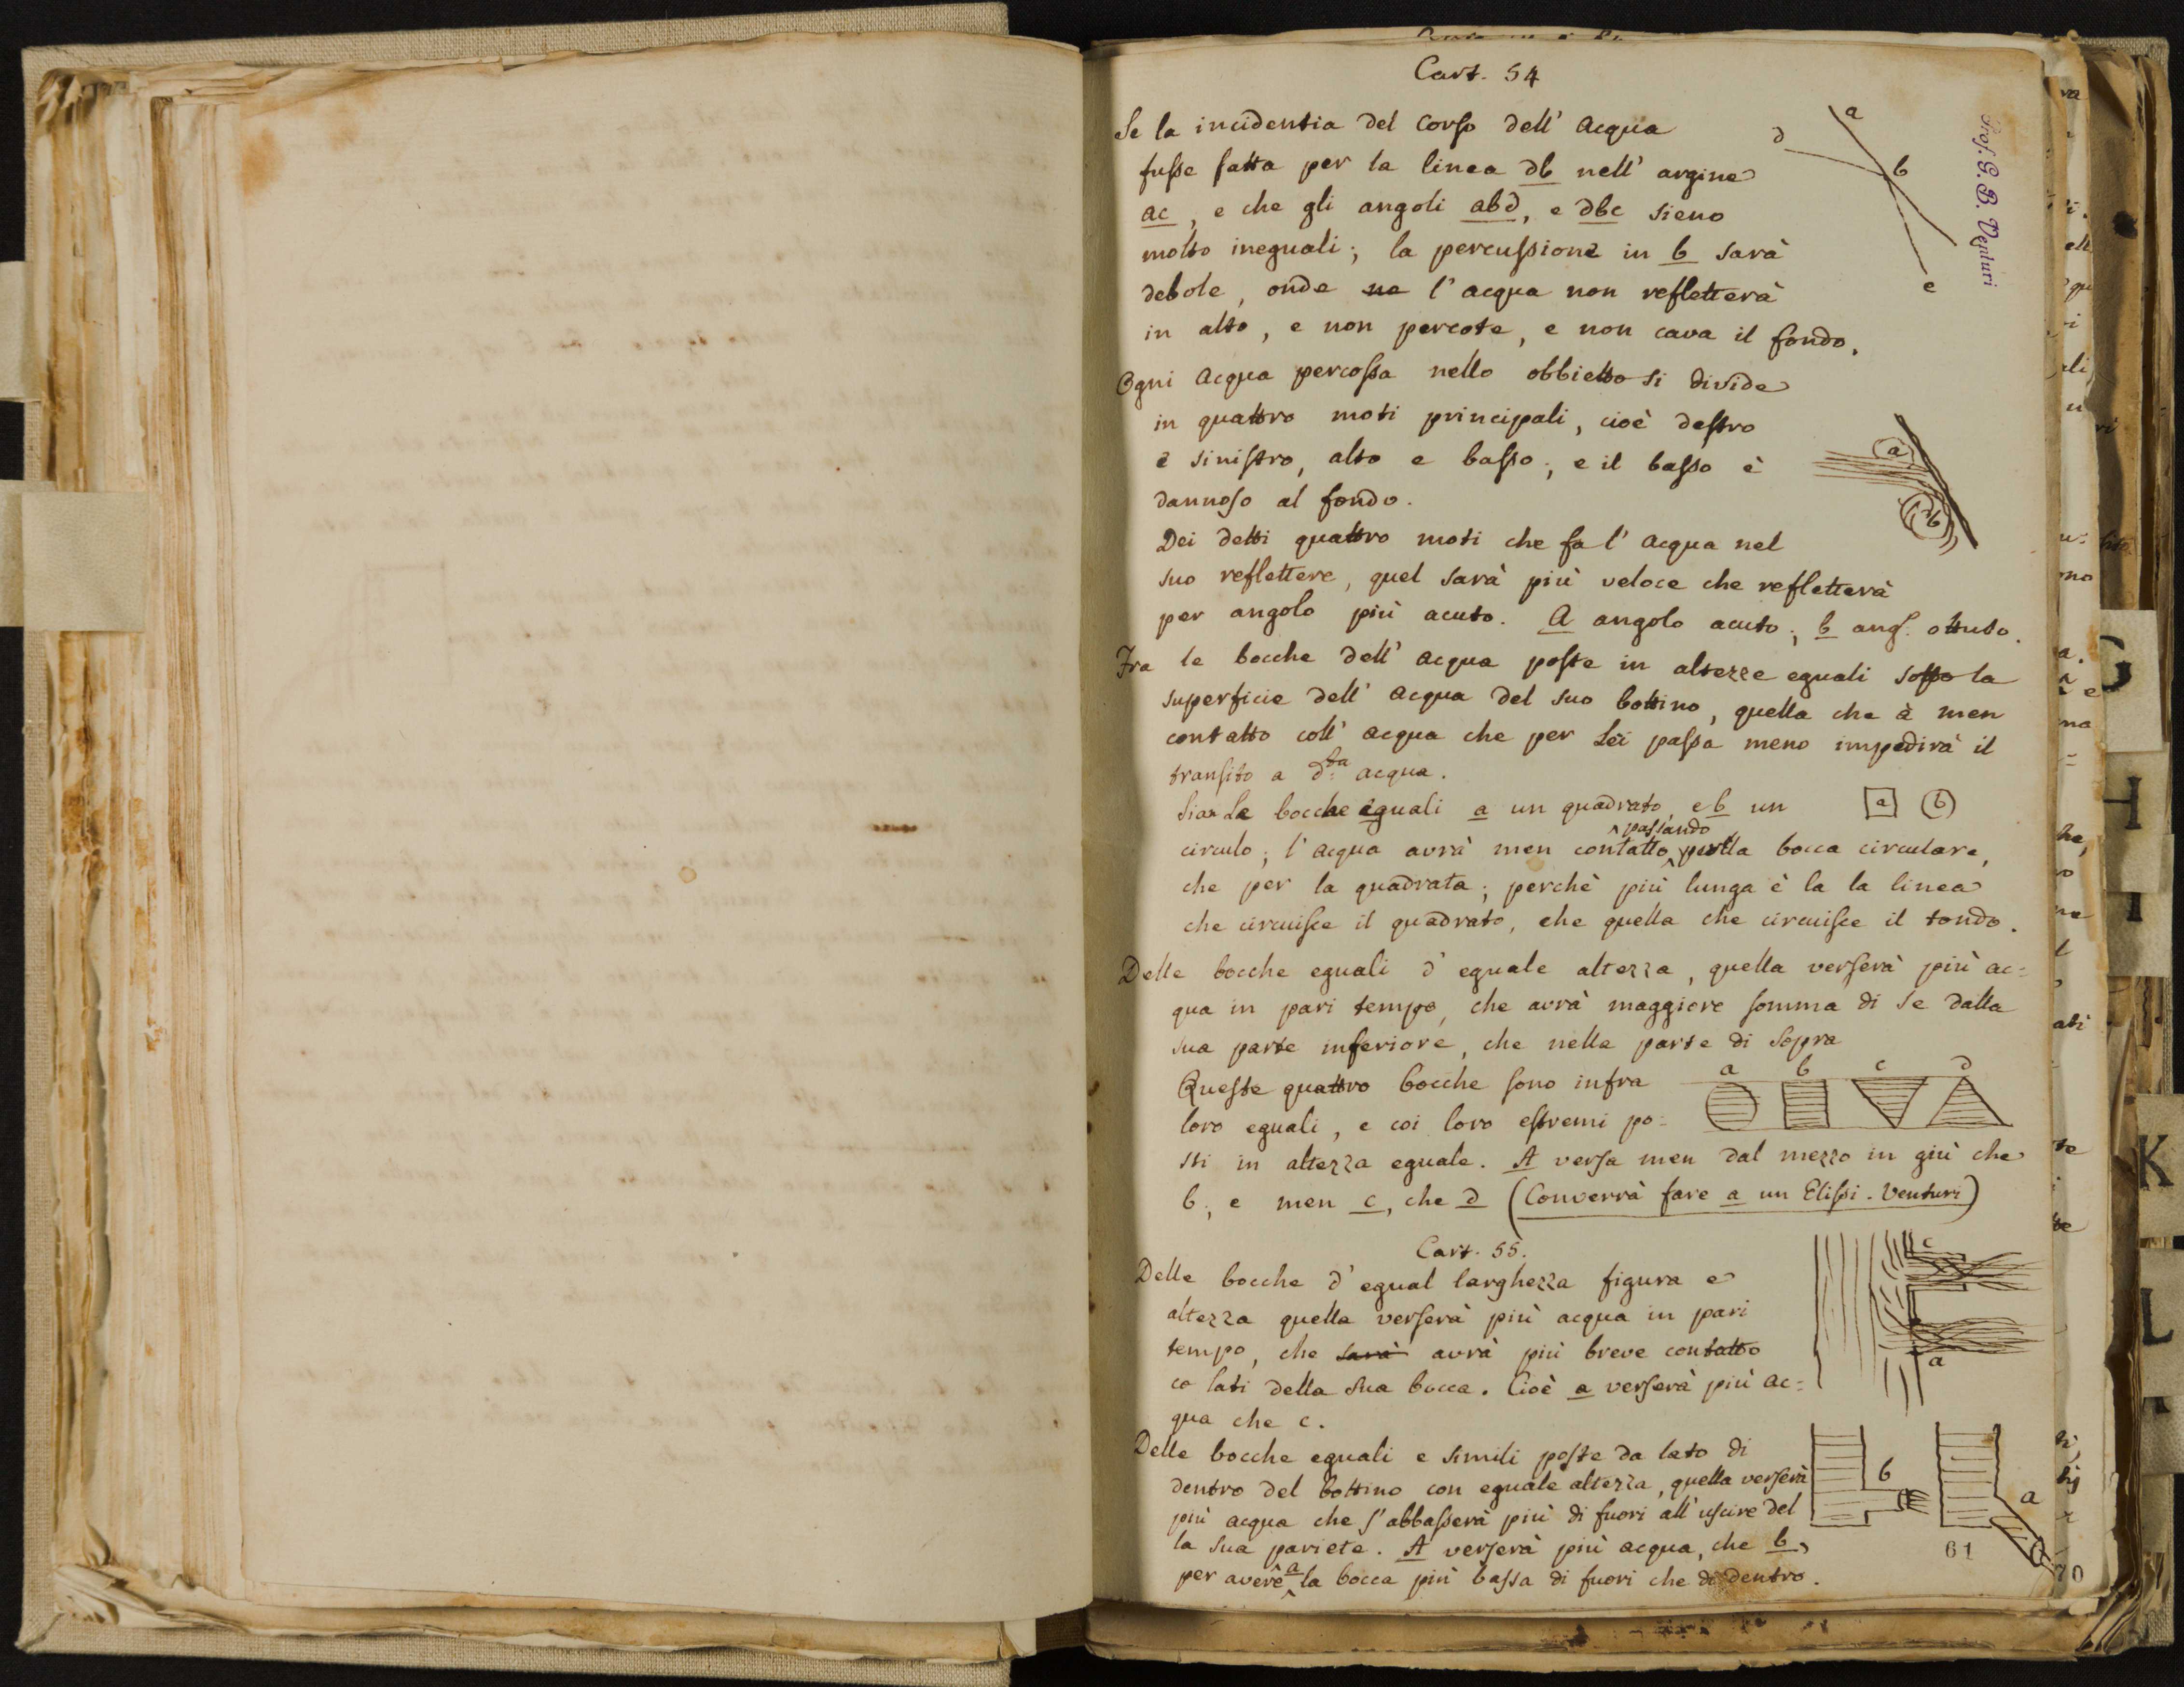 Cart. 54
Se la incidentia del corso dell' acqua
fusse fatta per la linea db nell' argine
ac, e che gli angoli abd, e dbc sieno
molto ineguali; la percussione in b sarà
debole, onde ne l' acqua non refletterà
in alto, e non percote, e non cava il fondo.
a
d
b
e
Prof. G. B. Venturi
Ogni acqua percossa nello obbietto si divide
in quattro moti principali, cioè destro
e sinistro, alto e basso; e il basso è
dannoso al fondo.
a
b
Dei detti quattro moti che fa l' acqua nel
suo reflettere, quel sarà più veloce che refletterà
per angolo più acuto. A angolo acuto; b ang. ottuso.
Fra le bocche dell' acqua poste in altezze eguali sotto la
superficie dell' acqua del suo bottino, quella che à men
contatto coll' acqua che per lei passa meno impedirà il
transito a d.ta acqua.
Sian le bocche eguali a un quadrato, e b un
a b
circulo; l' acqua avrà men contatto passando per la bocca circulare,
che per la quadrata; perchè più lunga è la la linea
che circuisce il quadrato, che quella che circuisce il tondo.
Delle bocche eguali d' eguale altezza, quella verserà più ac=
qua in pari tempo, che avrà maggiore somma di se dalla
sua parte inferiore, che nella parte di sopra
Queste quattro bocche sono infra
a b c d
loro eguali, e coi loro estremi po=
sti in altezza eguale. A versa men dal mezzo in giù che
b; e men c, che d (Converrà fare a un Elissi - Venturi)
Cart. 55.
Delle bocche d' egual larghezza figura e
altezza quella verserà più acqua in pari
tempo, che sarà avrà più breve contatto
co lati della sua bocca. Cioè a verserà più ac=
qua che c.
c
a
Delle bocche eguali e simili poste da lato di
dentro del bottino con eguale altezza, quella verserà
più acqua che s'abbasserà più di fuori all' uscire del
la sua pariete. A verserà più acqua, che b,
per avere a la bocca più bassa di fuori che di dentro.
b
a
61
70
G
H
I
K
L